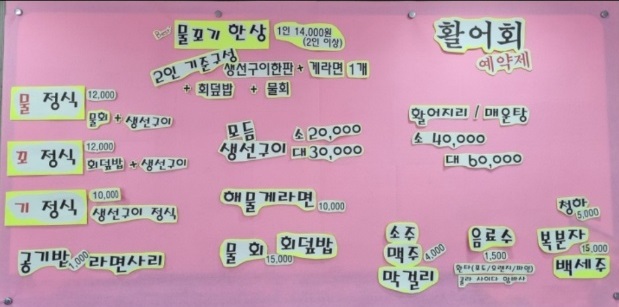 Best 물꼬기 한상 1인 14,000원
(2인 이상)
2인 기준구성 생선구이한판 + 게라면 1개
+ 회덮밥 + 물회
활어회
예약제
물 정식 12,000
물회 + 생선구이
꼬 정식 12,000
회덮밥 + 생선구이
기 정식 10,000
생선구이 정식
공기밥 1,000 라면사리
모듬 소 20,000
생선구이 대 30,000
해물게라면 10,000
물회 회덮밥
15,000
활어지리 / 매운탕
소 40,000
대 60,000
소주
맥주 4,000
막걸리
음료수
1,500
환타(포도/오렌지/파인)
콜라 사이다
청하
5,000
복분자
15,000
백세주